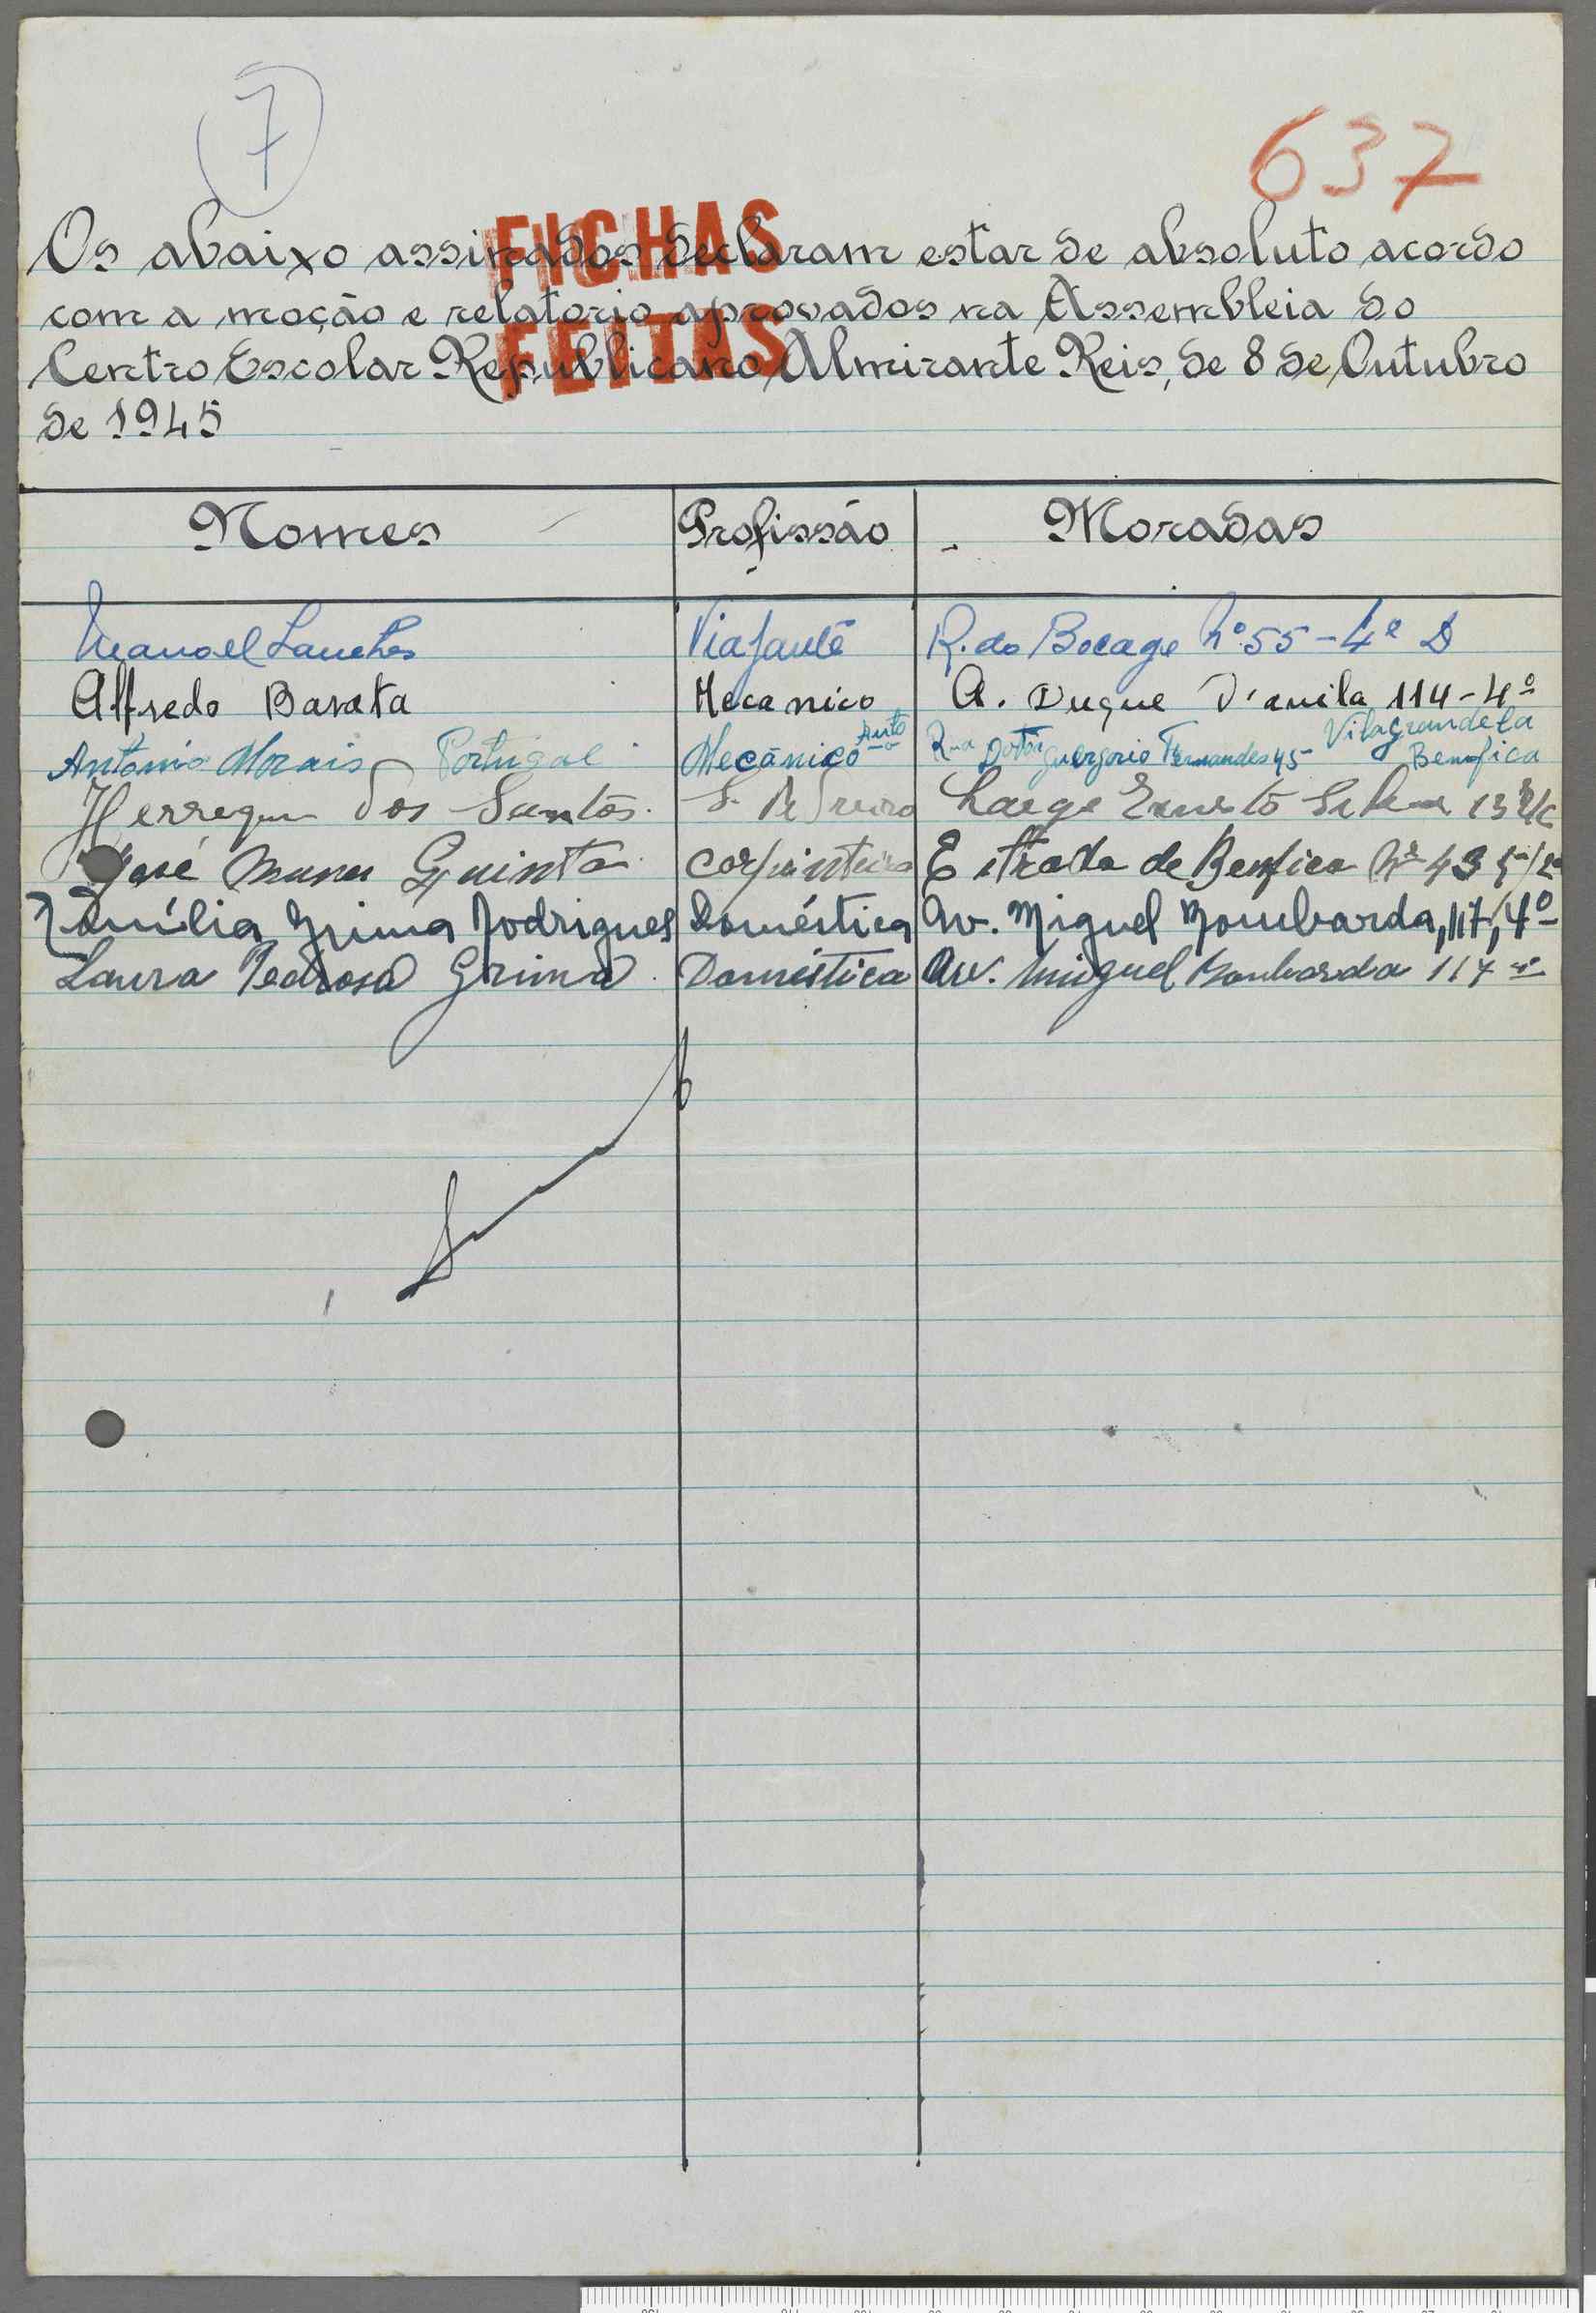 7
637
FICHAS
FEITAS
Os abaixo assinados declaram estar de absoluto acordo
com a moção e relatorio aprovados na Assembleia do
Centro Escolar Republicano Almirante Reis, de 8 de Outubro
de 1945
Nomes Profissão Moradas
Manoel Sanches Viajante R. do Bocage Nº 55 - 4º D
Alfredo Barata Mecanico A. Duque D'avila 114 - 4º
Antonio Morais Portugal Mecânico Auto Rua Dotor Guergorio Fernandes 45 Vila Grandela Benefica
dos Santos Largo Ernesto Silva 13 r/c
José Nunes Quinta Carpinteiro Estrada de Benfica Nº
Família Grima Rodrigues Doméstica Av. Miguel Bombarda, 117, 4º
Laura Pedroso Grima Doméstica Av. Miguel Bombarda 117